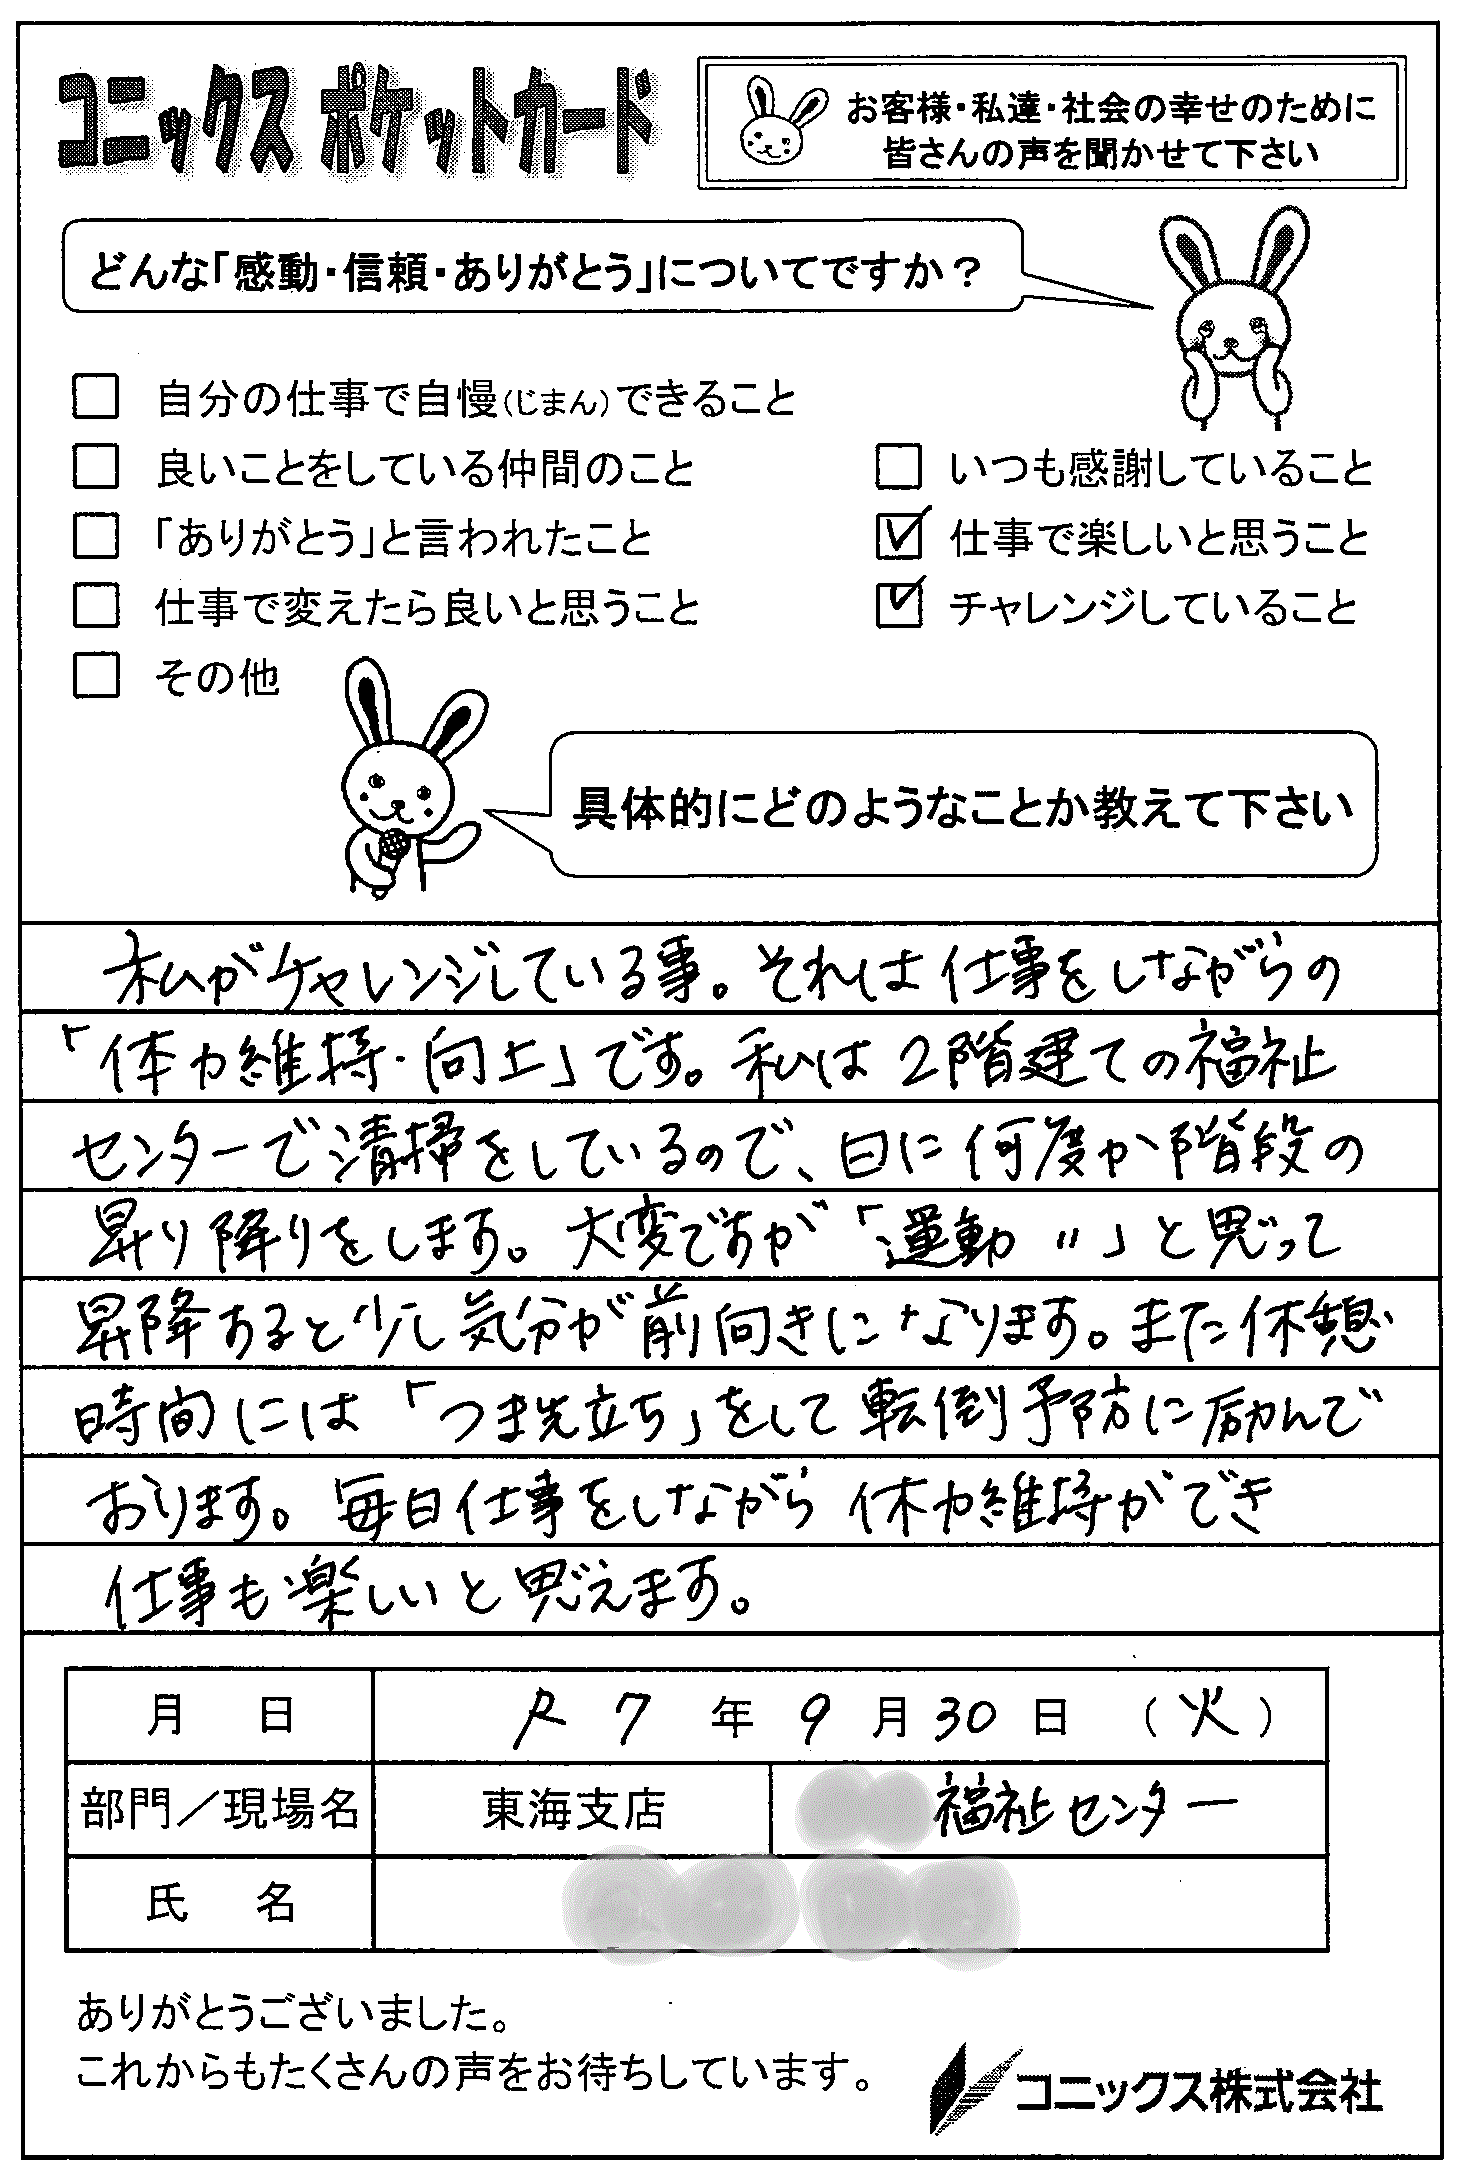 コニックス ポケットカード
お客様・私達・社会の幸せのために
皆さんの声を聞かせて下さい
どんな「感動・信頼・ありがとう」についてですか？
□ 自分の仕事で自慢(じまん)できること
□ 良いことをしている仲間のこと
□ いつも感謝していること
□ 「ありがとう」と言われたこと
☑ 仕事で楽しいと思うこと
□ 仕事で変えたら良いと思うこと
☑ チャレンジしていること
□ その他
具体的にどのようなことか教えて下さい
私がチャレンジしている事。それは仕事をしながらの
「体力維持・向上」です。私は2階建ての福祉
センターで清掃をしているので、日に何度か階段の
昇り降りをします。大変ですが「運動〃」と思って
昇降すると少し気分が前向きになります。また休憩
時間には「つま先立ち」をして転倒予防に励んで
おります。毎日仕事をしながら体力維持ができ
仕事も楽しいと思えます。
月 日 R7年9月30日（火）
部門／現場名 東海支店 福祉センター
氏 名
ありがとうございました。
これからもたくさんの声をお待ちしています。
コニックス株式会社